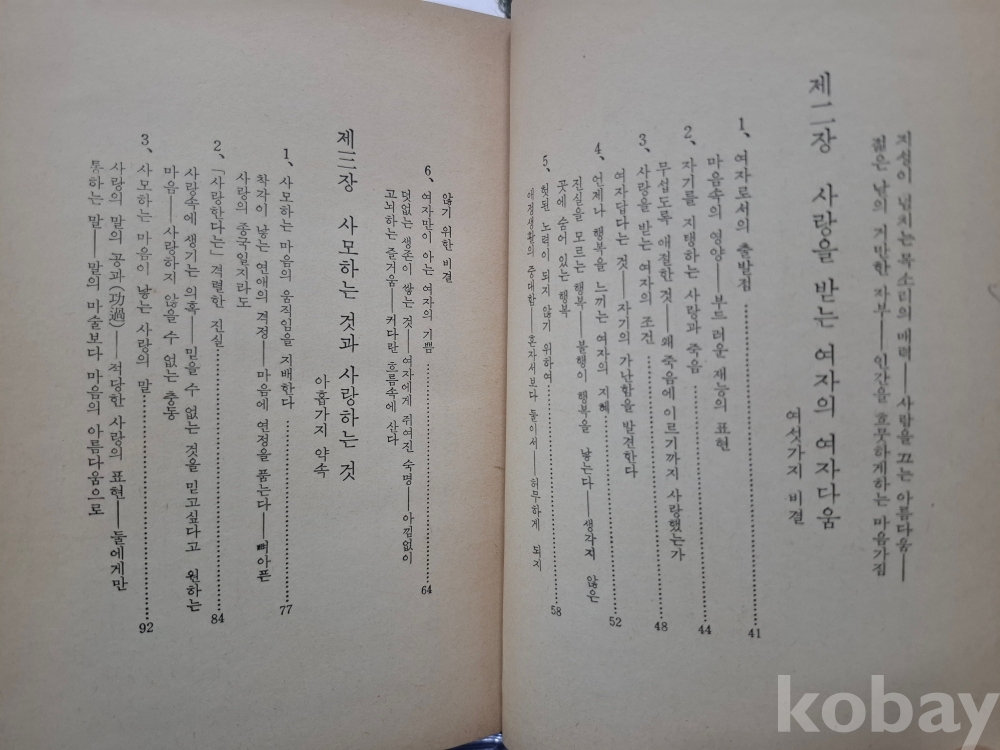 지성이 넘치는 목소리의 매력——사람을 끄는 아름다움——
젊은 날의 거만한 자부——인간을 흐뭇하게하는 마음가짐
제二장 사랑을 받는 여자의 여자다움
여섯가지 비결
1、여자로서의 출발점……………41
마음속의 영양——부드러운 재능의 표현
2、자기를 지탱하는 사랑과 죽음……………44
무섭도록 애절한 것——왜 죽음에 이르기까지 사랑했는가
3、사랑을 받는 여자의 조건……………48
여자답다는 것——자기의 가난함을 발견한다
4、언제나 행복을 느끼는 여자의 지혜……………52
진실을 모르는 행복——불행이 행복을 낳는다——생각지 않은
곳에 숨어 있는 행복
5、헛된 노력이 되지 않기 위하여……………58
애정생활의 중대함——혼자서보다 둘이서——허무하게 되지
않기 위한 비결
6、여자만이 아는 여자의 기쁨……………64
덧없는 생존이 쌓는 것——여자에게 쥐여진 숙명——아낌없이
고뇌하는 즐거움——커다란 흐름속에 산다
제三장 사모하는 것과 사랑하는 것
아홉가지 약속
1、사모하는 마음의 움직임을 지배한다……………77
착각이 낳는 연애의 격정——마음에 연정을 품는다——뼈아픈
사랑의 종국일지라도
2、「사랑한다는」 격렬한 진실……………84
사랑속에 생기는 의혹——믿을 수 없는 것을 믿고싶다고 원하는
마음——사랑하지 않을 수 없는 충동
3、사모하는 마음이 낳는 사랑의 말……………92
사랑의 말의 공과(功過)——적당한 사랑의 표현——둘에게만
통하는 말——말의 마술보다 마음의 아름다움으로
kobay